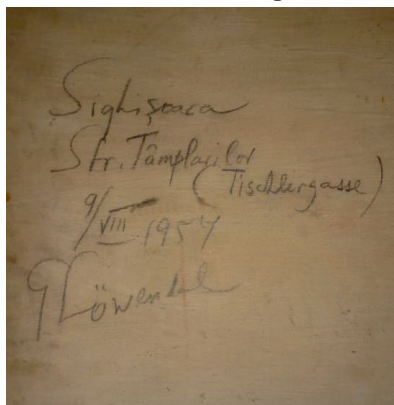 Sighişoara
Str. Tâmplarilor
(Tischlergasse)
9/VIII 1957
G Löwendal